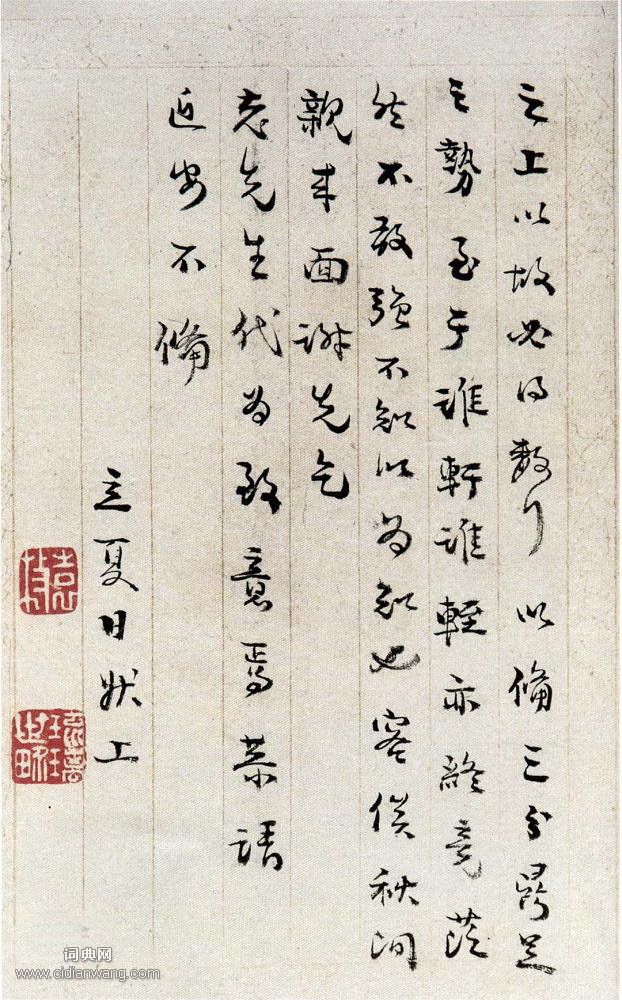 之上以故必得数行 以備三分鼎足
之勢至于誰軒誰輊亦終竟茫
然不敢強不知以為知也容俟秋間
親来面謝先乞
老先生代为致意焉恭請
近安不備
立夏日狀上
词典网
www.cidianwang.com